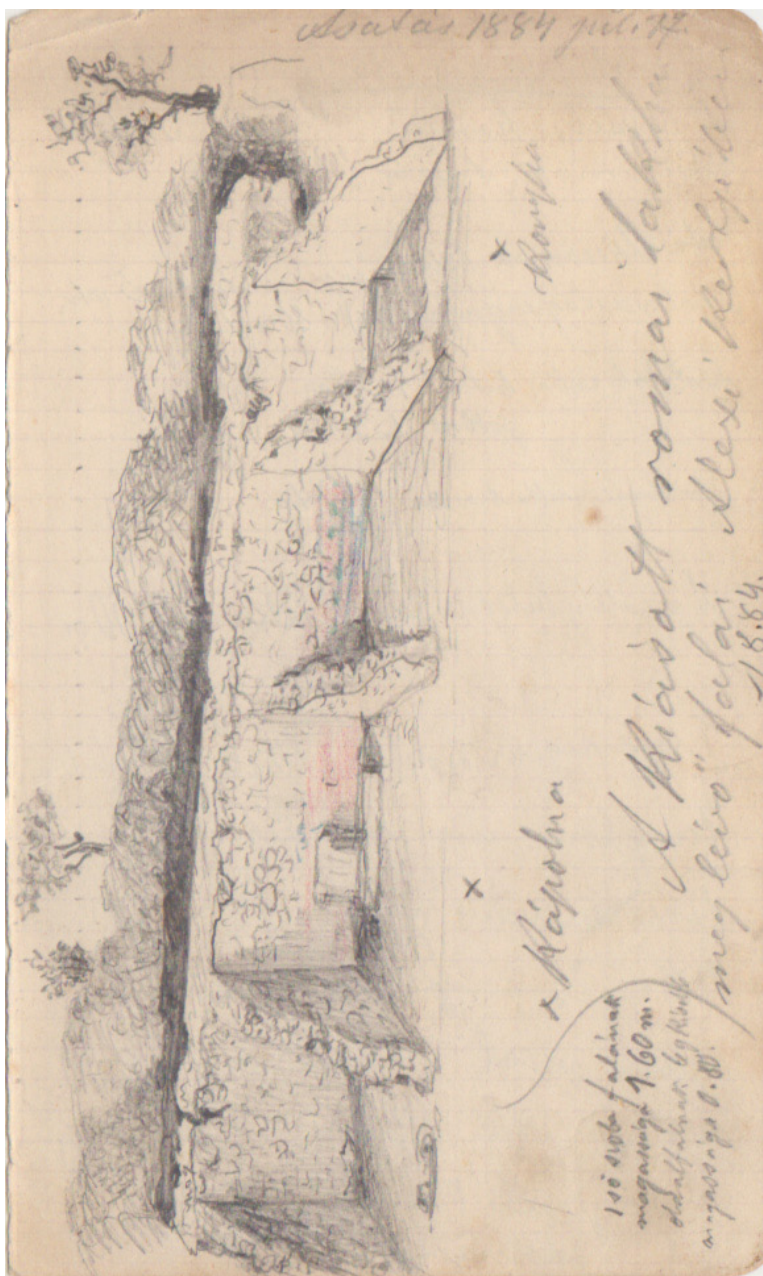 Ásatás 1884 júl. 17.
× Konyha
×
× Kápolna
A Kiásott romai lakház
meg lévő falai Alexi kertjében
1884.
1ső szoba falának
magassága 1.60 m.
oldalfalnak
magassága 0.80.